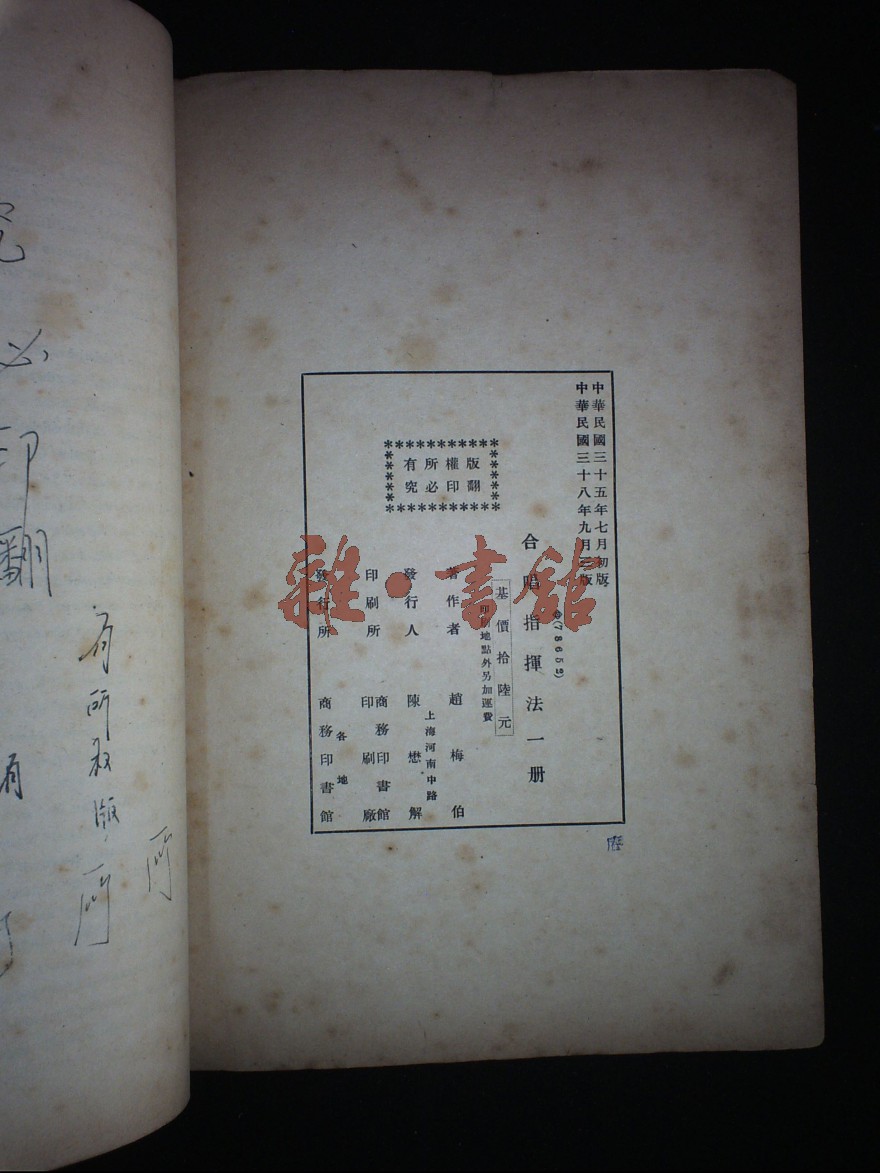 中華民國三十五年七月初版
中華民國三十八年九月
(78652)
合唱指揮法一册
基價拾陸元
印刷地點外另加運費
版權所有
翻印必究
著作者 趙梅伯
發行人 陳懋解
上海河南中路
印刷所 商務印書館
印刷廠
發行所 各地
商務印書館
雜·書館
究
必
印
翻
有所
版
有